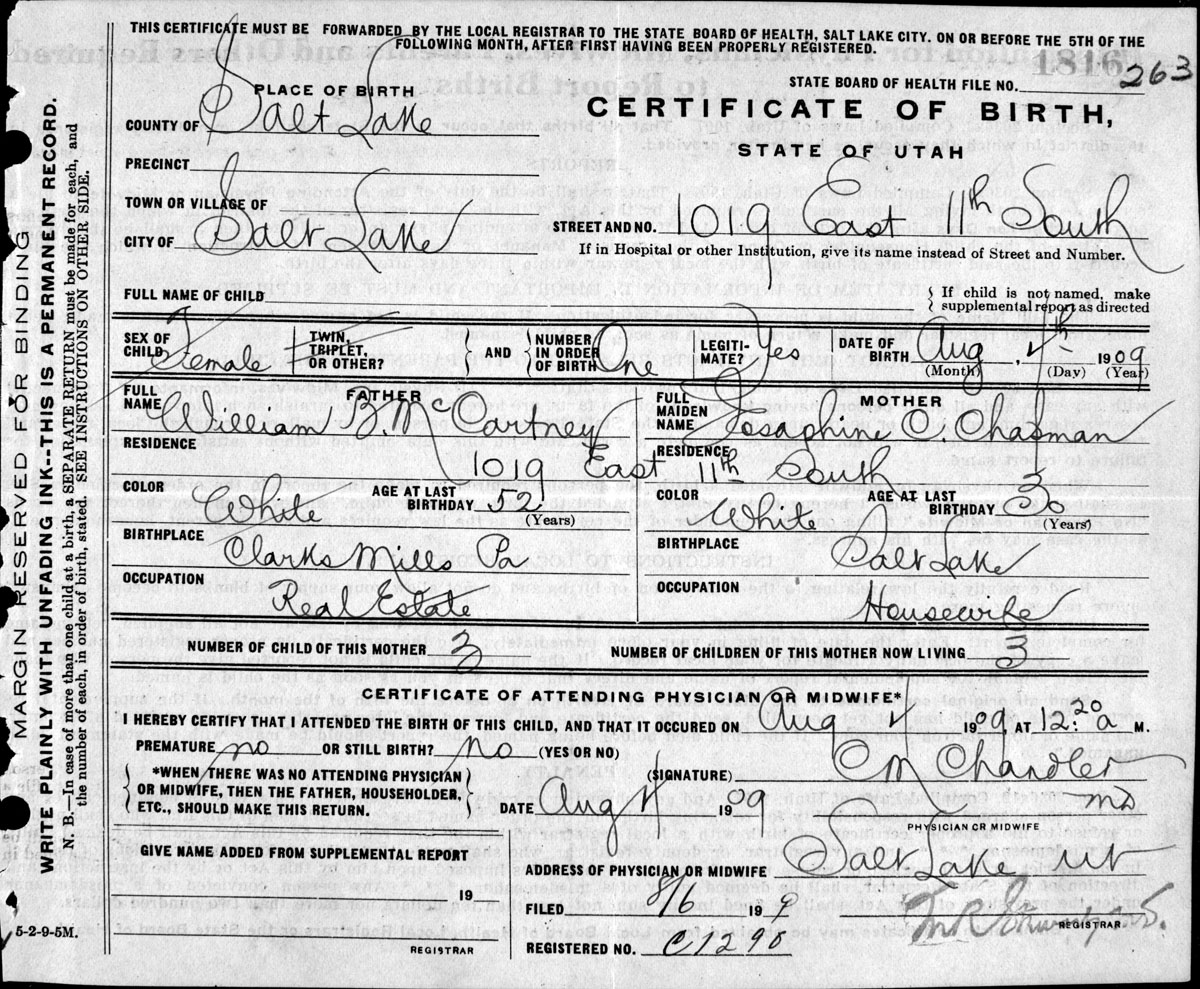 THIS CERTIFICATE MUST BE FORWARDED BY THE LOCAL REGISTRAR TO THE STATE BOARD OF HEALTH, SALT LAKE CITY. ON OR BEFORE THE 5TH OF THE
FOLLOWING MONTH, AFTER FIRST HAVING BEEN PROPERLY REGISTERED.
1816
STATE BOARD OF HEALTH FILE NO. 263
PLACE OF BIRTH
CERTIFICATE OF BIRTH,
COUNTY OF Salt Lake
STATE OF UTAH
PRECINCT
TOWN OR VILLAGE OF
E.
STREET AND NO. 1019 East 11th South
CITY OF Salt Lake
If in Hospital or other Institution, give its name instead of Street and Number.
FULL NAME OF CHILD
If child is not named, make
supplemental report as directed
SEX OF CHILD Female
TWIN, TRIPLET, OR OTHER?
AND NUMBER IN ORDER OF BIRTH One
LEGITIMATE? Yes
DATE OF BIRTH Aug, 4th 1909
(Month) (Day) (Year)
FATHER
FULL NAME William B. McCartney
MOTHER
FULL MAIDEN NAME Josaphine C. Chapman
RESIDENCE RESIDENCE
1019 East 11th South
COLOR White AGE AT LAST BIRTHDAY 52 (Years)
COLOR White AGE AT LAST BIRTHDAY 30 (Years)
BIRTHPLACE Clarks Mills Pa
BIRTHPLACE Salt Lake
OCCUPATION Real Estate
OCCUPATION Housewife
NUMBER OF CHILD OF THIS MOTHER 3
NUMBER OF CHILDREN OF THIS MOTHER NOW LIVING 3
CERTIFICATE OF ATTENDING PHYSICIAN OR MIDWIFE*
I HEREBY CERTIFY THAT I ATTENDED THE BIRTH OF THIS CHILD, AND THAT IT OCCURED ON Aug 4 1909, AT 12:20 a M.
PREMATURE no OR STILL BIRTH? no (YES OR NO)
*WHEN THERE WAS NO ATTENDING PHYSICIAN
OR MIDWIFE, THEN THE FATHER, HOUSEHOLDER,
ETC., SHOULD MAKE THIS RETURN.
(SIGNATURE) C M Chandler
MD
DATE Aug 4 1909
PHYSICIAN OR MIDWIFE
GIVE NAME ADDED FROM SUPPLEMENTAL REPORT
19
REGISTRAR
ADDRESS OF PHYSICIAN OR MIDWIFE Salt Lake Ut
FILED 8/6 199
REGISTRAR
REGISTERED NO. C1290
5-2-9-5M.
MARGIN RESERVED FOR BINDING
WRITE PLAINLY WITH UNFADING INK--THIS IS A PERMANENT RECORD.
N. B.—In case of more than one child at a birth, a SEPARATE RETURN must be made for each, and
the number of each, in order of birth, stated. SEE INSTRUCTIONS ON OTHER SIDE.